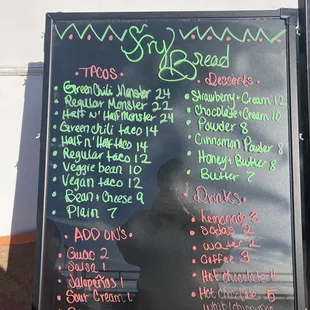 Fry Bread
TACOS
Green Chili Monster 24
Regular Monster 22
Half N' Half Monster 24
Green chili taco 14
Half n' Half taco 14
Regular taco 12
Veggie bean 10
Vegan taco 12
Bean & Cheese 9
Plain 7
ADD ON'S
Guac 2
Salsa 1
Jalapeños 1
Sour Cream 1
Desserts
Strawberry & Cream 12
Chocolate & Cream 10
Powder 8
Cinnamon Powder 8
Honey & Butter 8
Butter 7
Drinks
Lemonade 3
Sodas 2
Water 2
Coffee 3
Hot chocolate 4
Hot chocolate 5